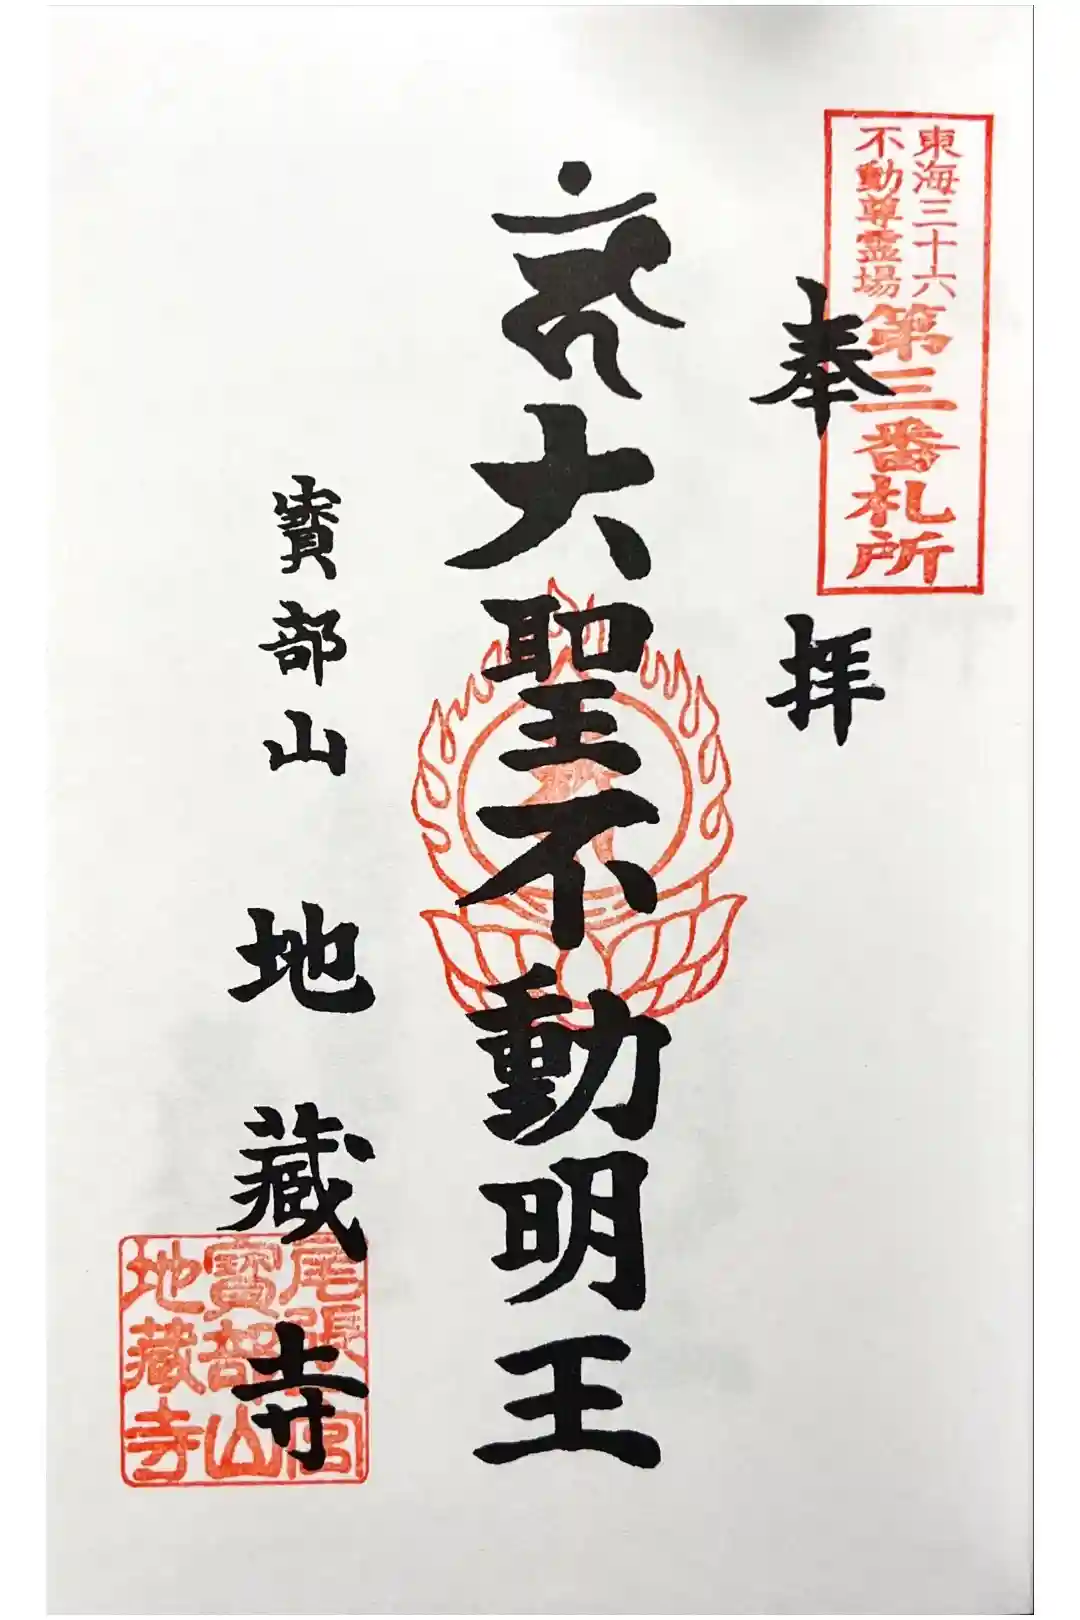 東海三十六
不動尊霊場
第三番札所
奉拝
大聖不動明王
寳部山
地蔵寺
尾張宮
寳部山
地蔵寺